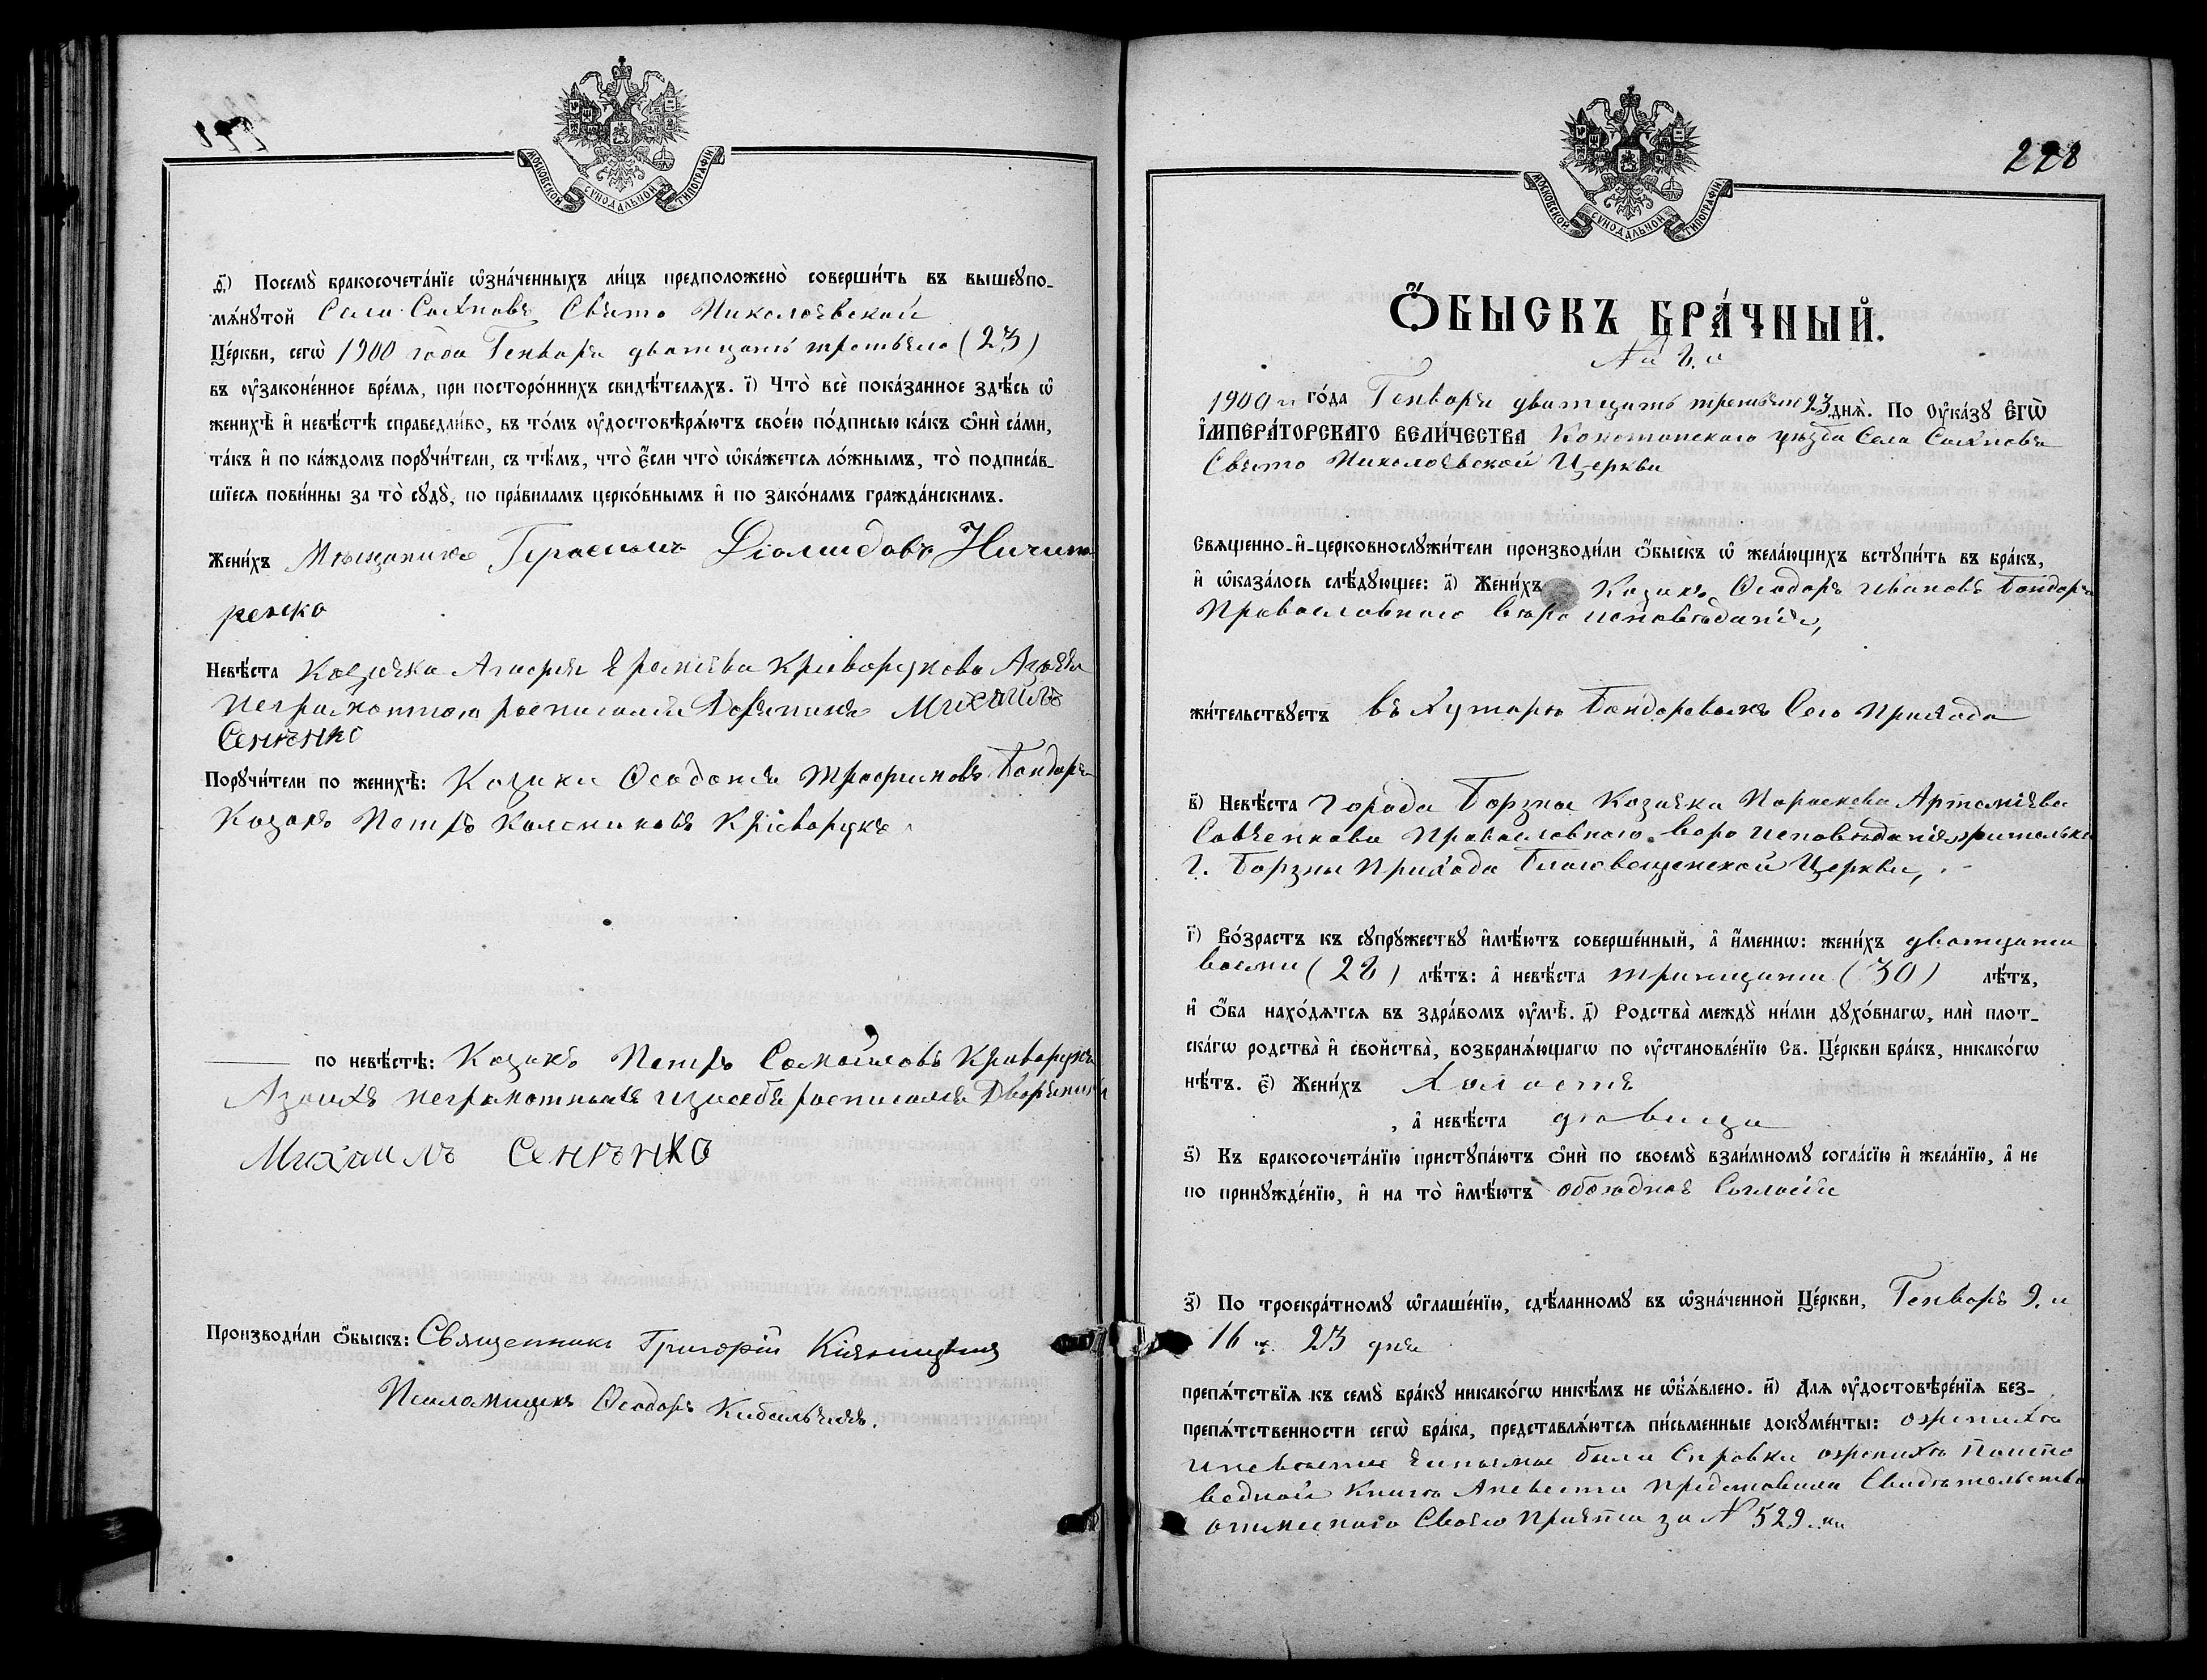 МОСКОВСКОЙ СѴНОДАЛЬНОЙ ТИПОГРАФІИ
ѳ҃) Посемꙋ̀ бракосочета́нїе ѡ҆зна́ченныхъ ли́цъ предположено̀ соверши́ть въ вышеꙋпо-
мѧ́нꙋтой Села Сахновъ Свято Николаевской
Це́ркви, сегѡ̀ 1900 года Генваря дватцать третьяго (23)
въ ᲂу҆зако́ненное вре́мѧ, при посторо́ннихъ свидѣ́телѧхъ. і҃) Что̀ всѐ пока́занное здѣ́сь ѡ҆
женихѣ̀ и҆ невѣ́стѣ справедли́во, въ то́мъ ᲂу҆достовѣрѧ́ютъ свое́ю по́дписью ка́къ ѻ҆нѝ са́ми,
та́къ и҆ по ка́ждомъ порꙋчи́тели, съ тѣ́мъ, что̀ є҆́сли что̀ ѡ҆ка́жетсѧ ло́жнымъ, то̀ подписа́в-
шїесѧ пови́нны за то̀ сꙋдꙋ̀, по пра́виламъ церко́внымъ и҆ по зако́намъ гражда́нскимъ.
Жени́хъ Мѣщанинъ Герасимъ Діомидовъ Ничипо
ренко
Невѣ́ста Козачка Криворукова
неграмотною росписался Дворянинъ Михаилъ
Сененко
Порꙋчи́тели по женихѣ̀: Козаки Ѳеодосій Трофимовъ Бондарь
Козакъ Петръ Криворукъ
по невѣ́стѣ: Козакъ Петръ Самойловъ Криворукъ
Азаихъ неграмотныхъ и за себя росписался Дворянинъ
Михаилъ Сененко
Производи́ли ѻ҆́быскъ: Священникъ Григорій
Псаломщикъ Ѳеодоръ Кибальчичъ.
МОСКОВСКОЙ СѴНОДАЛЬНОЙ ТИПОГРАФІИ
228
Ѻ҆́БЫСКЪ БРА́ЧНЫЙ.
№ 8.й
1900 го́да Генваря дватцать третьяго 23 днѧ̀. По Оу҆ка́зꙋ Є҆гѡ̀
І҆МПЕРА́ТОРСКАГО ВЕЛИ́ЧЕСТВА Конотопского уѣзда Села Сахновъ
Свято Николаевской Церкви
Свѧщенно-и҆-церковнослꙋжи́тели производи́ли ѻ҆́быскъ ѡ҆ жела́ющихъ встꙋпи́ть въ бра́къ,
и҆ ѡ҆каза́лось слѣ́дꙋющее: а҃) Жени́хъ Козакъ Ѳеодоръ Ивановъ Бондарь
Православного вѣро исповѣданія,
жи́тельствꙋетъ въ Хуторѣ Бондаревыхъ Сего Прихода
в҃) Невѣ́ста города Борзны Козачка Параскева Артеміева
Савченкова Православного вѣро исповѣданія жителька
г. Борзны Прихода Благовѣщенской Церкви,
г҃) Во́зрастъ къ сꙋпрꙋ́жествꙋ и҆мѣ́ютъ соверше́нный, а҆ и҆́меннѡ: жени́хъ дватцати
восми (28) лѣ́тъ: а҆ невѣ́ста тритцати (30) лѣ́тъ,
и҆ ѻ҆́ба нахо́дѧтсѧ въ здра́вомъ ᲂу҆мѣ̀. д҃) Родства̀ междꙋ̀ ни́ми дꙋхо́внагѡ, и҆лѝ плот-
ска́гѡ родства̀ и҆ сво́йства, возбранѧ́ющагѡ по ᲂу҆становле́нїю Св. Це́ркви бра́къ, никако́гѡ
нѣ́тъ. є҃) Жени́хъ Холостъ
, а҆ невѣ́ста дѣвица
ѕ҃) Къ бракосочета́нїю пристꙋпа́ютъ ѻ҆нѝ по своемꙋ̀ взаи́мномꙋ согла́сїю и҆ жела́нїю, а҆ не
по принꙋжде́нїю, и҆ на то̀ и҆мѣ́ютъ обоюдное Согласіе
з҃) По троекра́тномꙋ ѡ҆глаше́нїю, сдѣ́ланномꙋ въ ѡ҆зна́ченной Це́ркви, Генваря 9. и
16 и 23 дня
препѧ́тствїѧ къ семꙋ̀ бра́кꙋ никако́гѡ никѣ́мъ не ѡ҆б̾ѧ́влено. и҃) Длѧ ᲂу҆достовѣре́нїѧ без-
препѧ́тственности сегѡ̀ бра́ка, представлѧ́ютсѧ пи́сьменные докꙋме́нты: о женихѣ
и невѣстѣ были Справки о женихѣ По испо
ведной Книгѣ А невеста представила Свидѣтельство
Своего причта за № 529.